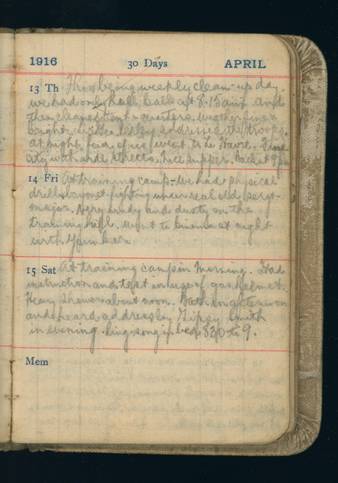 1916 30 Days APRIL
13 Th This being weekly clean-up day
we had only roll call at 8.15 a.m. And
then cleaned tent & quarters. Weather fine &
bright
at night, four of us went to Le Havre. Fine
city with wide streets. Nice supper. Back at 9 p.m.
14 Fri At training camp - we had physical
drill, bayonet fighting under real old Sergt-
major. Very windy and dusty on the
training hill. Went to cinema at night
with
15 Sat At training camp in morning. Had
instruction and test in use of gas helmet.
Heavy shower about noon. Bath in afternoon
and heard address by Gipsy Smith
in evening. Sing song in 8.30 to 9.
Mem